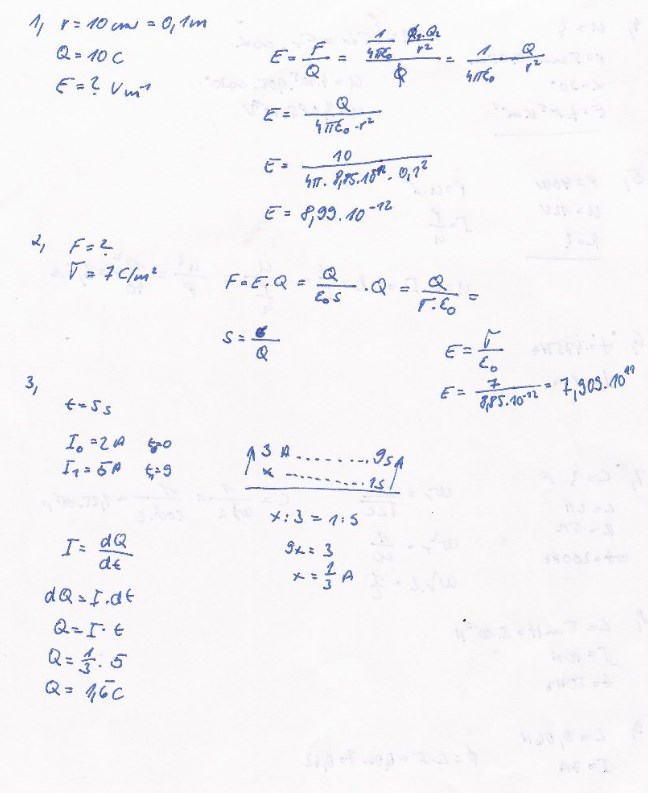 1, r = 10 cm = 0,1 m
Q = 10 C
E = ? Vm⁻¹
E = F/Q = (1/4πε₀ · Q₁·Q₂/r²)/Q = 1/4πε₀ · Q/r²
E = Q/(4πε₀·r²)
E = 10/(4π · 8,85·10⁻¹² · 0,1²)
E = 8,99·10⁻¹²
2, F = ?
σ = 7 C/m²
F = E·Q = Q/(ε₀S) · Q = Q/(σ·ε₀) =
S = σ/Q
E = σ/ε₀
E = 7/(8,85·10⁻¹²) = 7,909·10¹¹
3,
t = 5s
I₀ = 2A t₀=0
I₁ = 5A t₁=9
3 A ........ 9s
x ........ 1s
x : 3 = 1 : 5
9x = 3
x = 1/3 A
I = dQ/dt
dQ = I.dt
Q = I· t
Q = 1/3 · 5
Q = 1,6 C